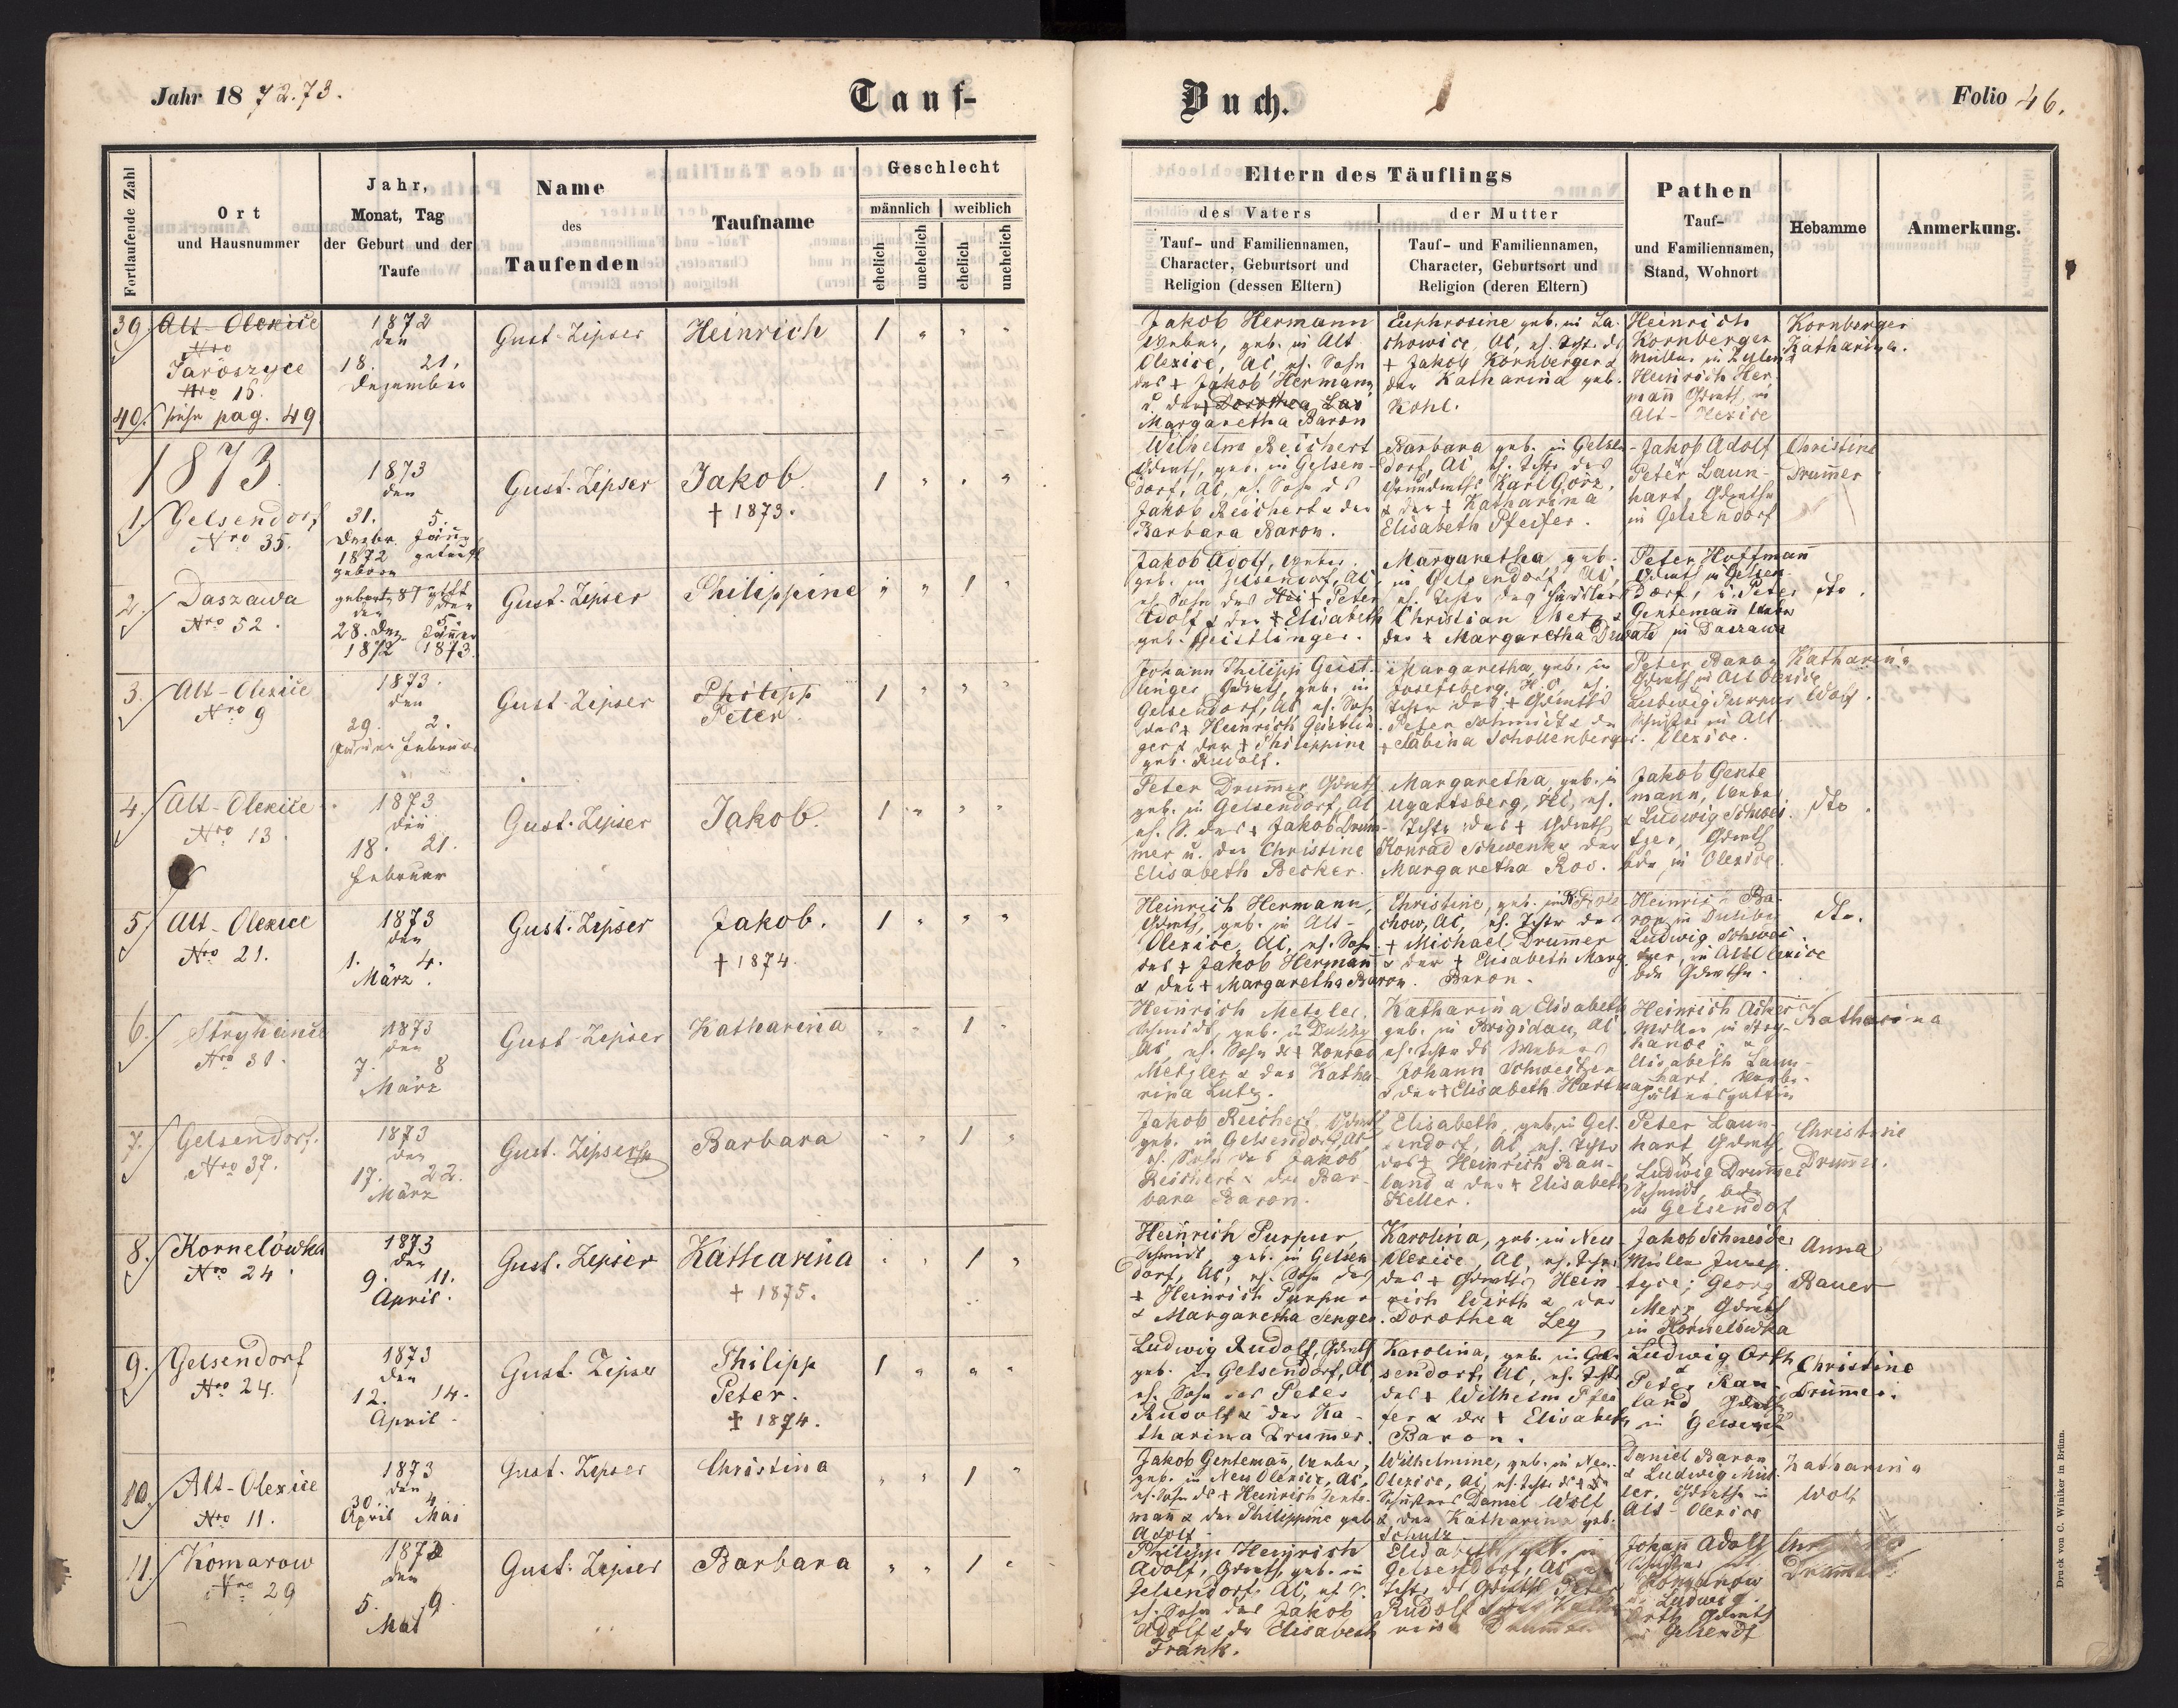 Jahr 1872.73.
Tauf-
Buch.
Folio 46.
Fortlaufende Zahl
Ort
und Hausnummer
Jahr,
Monat, Tag
der Geburt und der
Taufe
Name
des
Taufenden
Taufname
Geschlecht
männlich
weiblich
ehelich
unehelich
ehelich
unehelich
Eltern des Täuflings
des Vaters
Tauf- und Familiennamen,
Character, Geburtsort und
Religion (dessen Eltern)
der Mutter
Tauf- und Familiennamen,
Character, Geburtsort und
Religion (deren Eltern)
Pathen
Tauf-
und Familiennamen,
Stand, Wohnort
Hebamme
Anmerkung.
39. Alt-Olexice
Nro
Jaroszyce
Nro 15.
1872
den
18. 21.
Dezember
Gust. Zipser
Heinrich
1 " " "
Jakob Hermann
Weber, geb. in Alt
Olexice, AC, eh. Sohn
des + Jakob Hermann
u. der + Dorothea Las
Margaretha Baron
Euphrosine geb. in La-
chowice, AC, eh. Tcht. ds
+ Jakob Kornberger &
der Katharina geb.
Kohl.
Heinrich
Kornberger
Müller in
Heinrich Her-
mann Grdwth, in
Alt-Olexice
Kornberger
Katharina.
40. siehe pag. 49
1873.
1. Gelsendorf
Nro 35.
1873
den
31. 5.
Dezbr. Jänner
1872 getauft
geboren
Gust. Zipser
Jakob
† 1873.
1 " " "
Wilhelm Reichert
Grdwth, geb. in Gelsen-
dorf, AC, eh. Sohn ds
Jakob Reichert & der
Barbara Baron.
Barbara geb. in Gelsen-
dorf, AC, eh. Tchtr des
Grundwirths Karl Görz,
& der + Katharina
Elisabeth Pfeifer.
Jakob Adolf
Peter Laun-
hart, Grdwthe
in Gelsendorf
Christine
Drum̅er
2. Daszawa
Nro 52.
geboren getft
den den
28. Dez. 5. Jänner
1872 1873.
Gust. Zipser
Philippine
" " 1 "
Jakob Adolf, Weber
geb. in Gelsendorf, AC,
eh. Sohn des + Peter
Adolf & der + Elisabeth
geb. Geistlinger.
Margaretha geb.
in Gelsendorf AC,
eh. Tchtr des
Christian Metz &
der + Margaretha
Peter Hoffmann
Grdwth in Gelsen-
dorf, u. Peter
Gentemann Weber
in Daszawa
dto.
3. Alt-Olexice
Nro 9
1873.
den
29. 2.
Jänner Februar
Gust. Zipser
Philipp
Peter
1 " " "
Johann Philipp Geist-
linger Grdwth, geb. in
Gelsendorf, AC eh. Sohn
des + Heinrich Geistlin-
ger & der + Philippine
geb. Rudolf.
Margaretha, geb. in
Josefsberg, H.C. eh.
Tchtr des + Grdwths
Peter Schmidt & der
+ Sabina Schollenberger.
Peter Baron
Grdwth in Alt Olexice
Ludwig Purpur
Schuster in Alt-
Olexice.
Katharina
Wolf.
4. Alt-Olexice
Nro 13.
1873
den
18. 21.
Februar
Gust. Zipser
Jakob.
1 " " "
Peter Drum̅er, Grdwth
geb. in Gelsendorf, AC
eh. S. des + Jakob Drum-
mer u. der Christine
Elisabeth Becker.
Margaretha, geb. in
Ugartsberg, HC, eh.
Tchtr des + Grdwths
Konrad Schwenk & der
Margaretha Ros.
Jakob Gente
mann, Weber
& Ludwig Schwei-
tzer, Grdwth
bde in Olexice.
dto.
5. Alt-Olexice
Nro 21.
1873
den
1. 4.
März.
Gust. Zipser
Jakob.
† 1874.
1 " " "
Heinrich Hermann,
Grdwth, geb. in Alt-
Olexice, AC, eh. Sohn
des + Jakob Hermann
& der + Margaretha Baron.
Christine, geb. in
chow, AC, eh. Tchtr des
+ Michael Drum̅er
& der + Elisabeth Marg.
Baron.
Heinrich Ba-
ron in
Ludwig Schwei-
tzer, in Alt Olexice
bde Grdwthe.
dto.
6. Stryhance
Nro 30.
1873
den
7. 8
März
Gust. Zipser
Katharina
" " 1 "
Heinrich Metzler,
Schmidt, geb. in
AC, eh. Sohn ds + Konrad
Metzler & der Katha-
rina Lutz.
Katharina Elisabeth
geb. in Brigidau, AC
eh. Tchtr ds Webers
Johann Schweitzer
& der + Elisabeth Hartmann
Heinrich Acker
Müller in Stry-
hance &
Elisabeth Laun-
hart
Katharina
7. Gelsendorf.
Nro 37.
1873
den
17. 22.
März
Gust. Zipser
Barbara
" " 1 "
Jakob Reichert, Grdwth
geb. in Gelsendorf, AC
eh. Sohn des Jakob
Reichert & der Bar-
bara Baron.
Elisabeth, geb. in Gel-
sendorf, AC, eh. Tchtr
des + Heinrich Rau-
land & der + Elisabeth
Keller.
Peter Laun-
hart Grdwth
&
Ludwig Drum̅er
Schmidt, bde
in Gelsendof
Christine
Drum̅er.
8. Kornelówka
Nro 24.
1873
den
9. 11.
April.
Gust. Zipser
Katharina
† 1875.
" " 1 "
Heinrich Purpur,
Schmidt, geb. in Gelsen-
dorf, AC, eh. Sohn des
+ Heinrich Purpur
& Margaretha Senger.
Karolina, geb. in Neu
Olexice, AC, eh. Tchtr
des + Grdwths Hein-
rich Wirth & der
Dorothea Ley
Jakob Schneider
Müller
Georg
Merz, Grdwth
in Kornelówka
Anna
Bauer
9. Gelsendorf
Nro 24.
1873
den
12. 14.
April.
Gust. Zipser
Philipp
Peter.
† 1874.
1 " " "
Ludwig Rudolf, Grdwth
geb. in Gelsendorf, AC
eh. Sohn des Peter
Rudolf & der Ka-
tharina Drum̅er.
Karolina, geb. in Gel-
sendorf, AC, eh. Tchtr
des + Wilhelm Pfei-
fer & der + Elisabeth
Baron.
Ludwig Orth
&
Peter Rau-
land, Grdwth
in Gelsend.
Christine
Drum̅er.
10. Alt-Olexice
Nro 11.
1873
den
30. 4.
April Mai
Gust. Zipser
Christina
" " 1 "
Jakob Gentemann, Weber,
geb. in Neu Olexice, AC,
eh. Sohn ds + Heinrich Gente-
man & der Philippine geb.
Adolf.
Wilhelmine, geb. in Neu-
Olexice, AC, eh. Tchtr ds
Schusters Daniel Wolf
& der Katharina geb.
Schulz
Daniel Baron
& Ludwig Mül-
ler, Grdwthe in
Alt-Olexice
Katharina
Wolf
11. Komarow
Nro 29
1873
den
5. 9.
Mai
Gust. Zipser
Barbara
" " 1 "
Philipp Heinrich
Adolf, Grdwth, geb. in
Gelsendorf, AC,
eh. Sohn des Jakob
Adolf & der Elisabeth
Frank.
Elisabeth, geb. in
Gelsendorf, AC
Tchtr ds Grdwth Peter
Rudolf
Drum̅er
Johann Adolf
Schuster in
Komarow
& Ludwig
Orth Grdwth
in Gelsendf
Drum̅er
Druck von C. Winiker in Brünn.